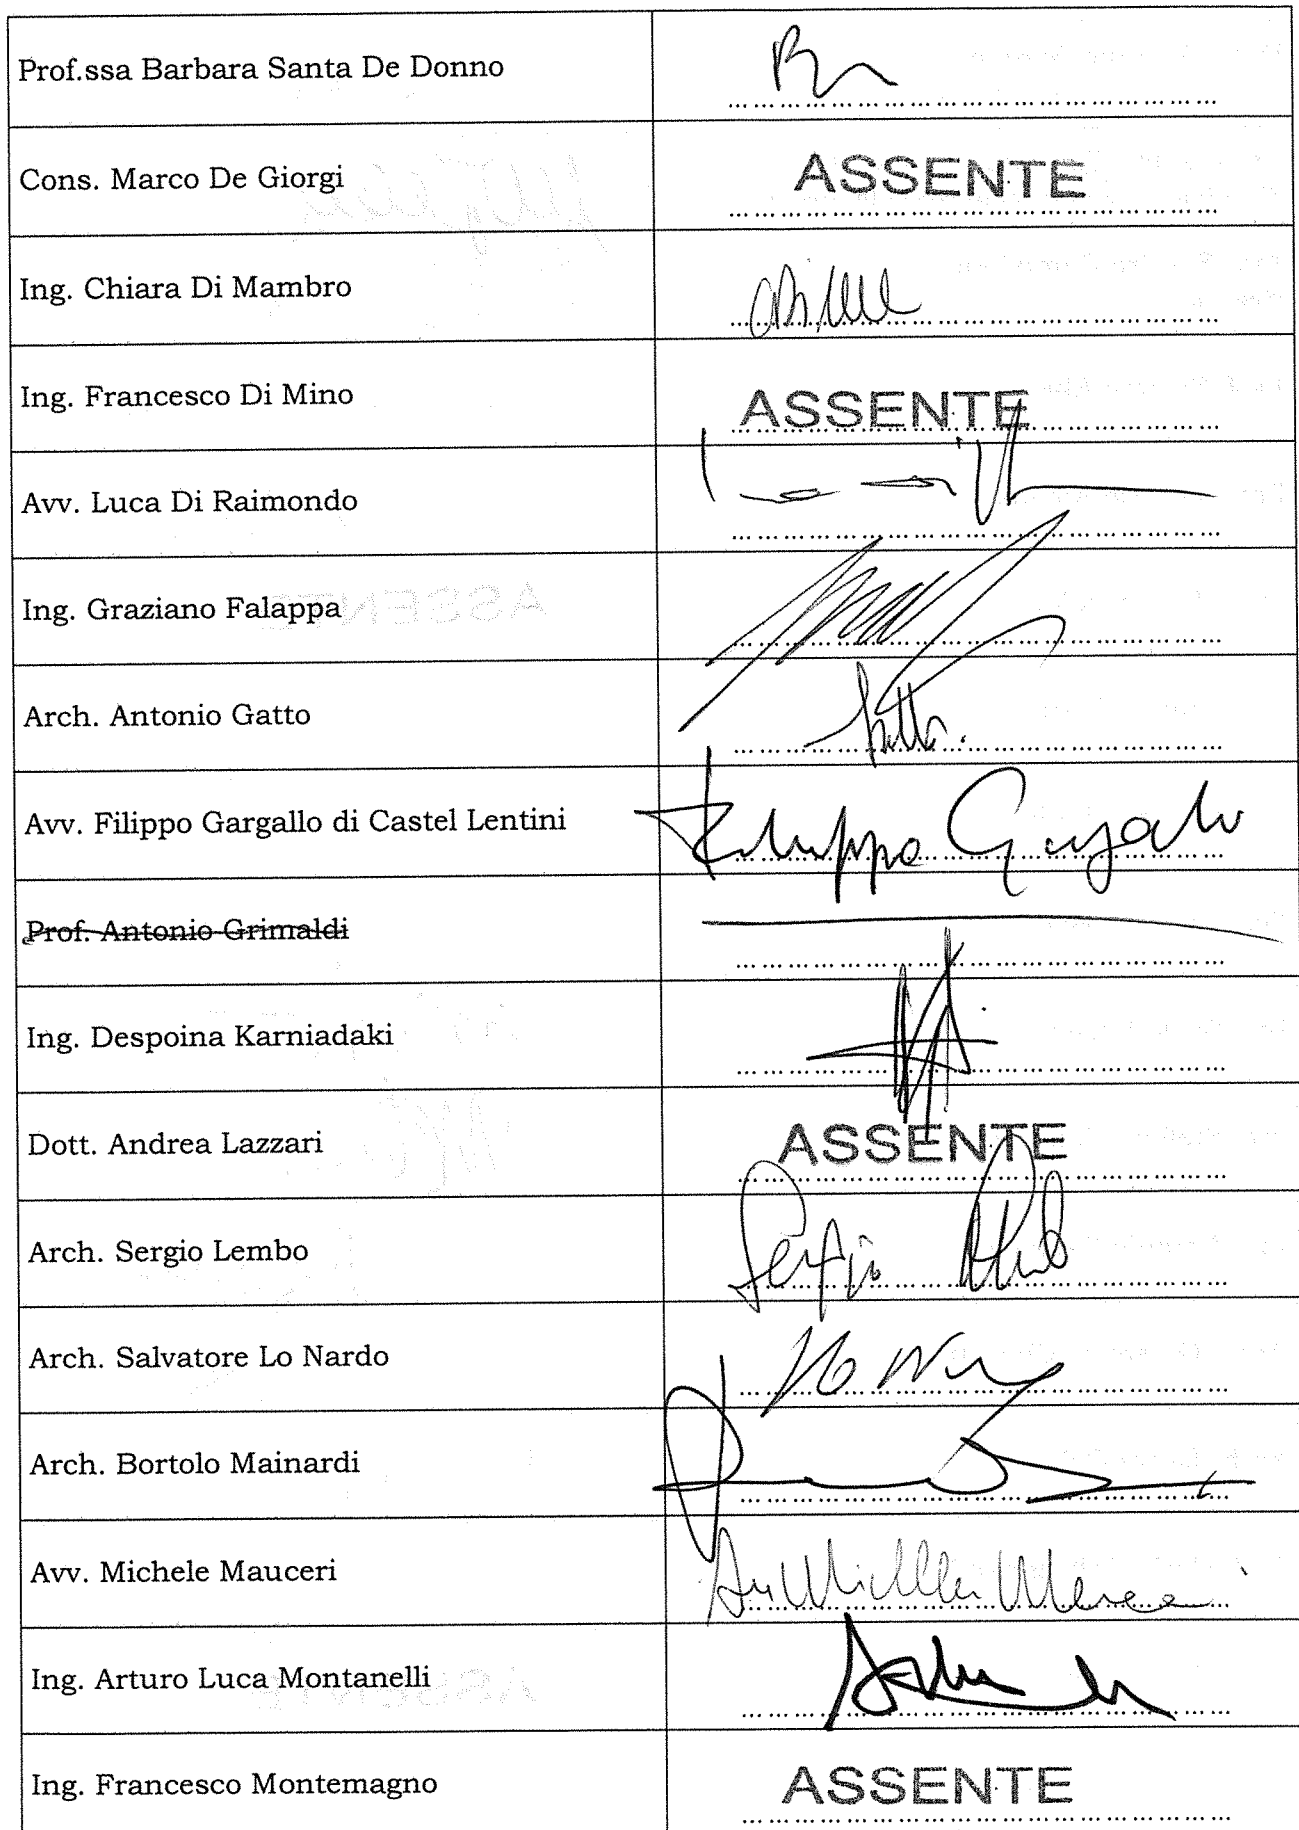 Prof.ssa Barbara Santa De Donno
Cons. Marco De Giorgi ASSENTE
Ing. Chiara Di Mambro
Ing. Francesco Di Mino ASSENTE
Avv. Luca Di Raimondo
Ing. Graziano Falappa
Arch. Antonio Gatto Gatto.
Avv. Filippo Gargallo di Castel Lentini Filippo Gargallo
Prof. Antonio Grimaldi
Ing. Despoina Karniadaki
Dott. Andrea Lazzari ASSENTE
Arch. Sergio Lembo Sergio
Arch. Salvatore Lo Nardo
Arch. Bortolo Mainardi
Avv. Michele Mauceri
Ing. Arturo Luca Montanelli
Ing. Francesco Montemagno ASSENTE